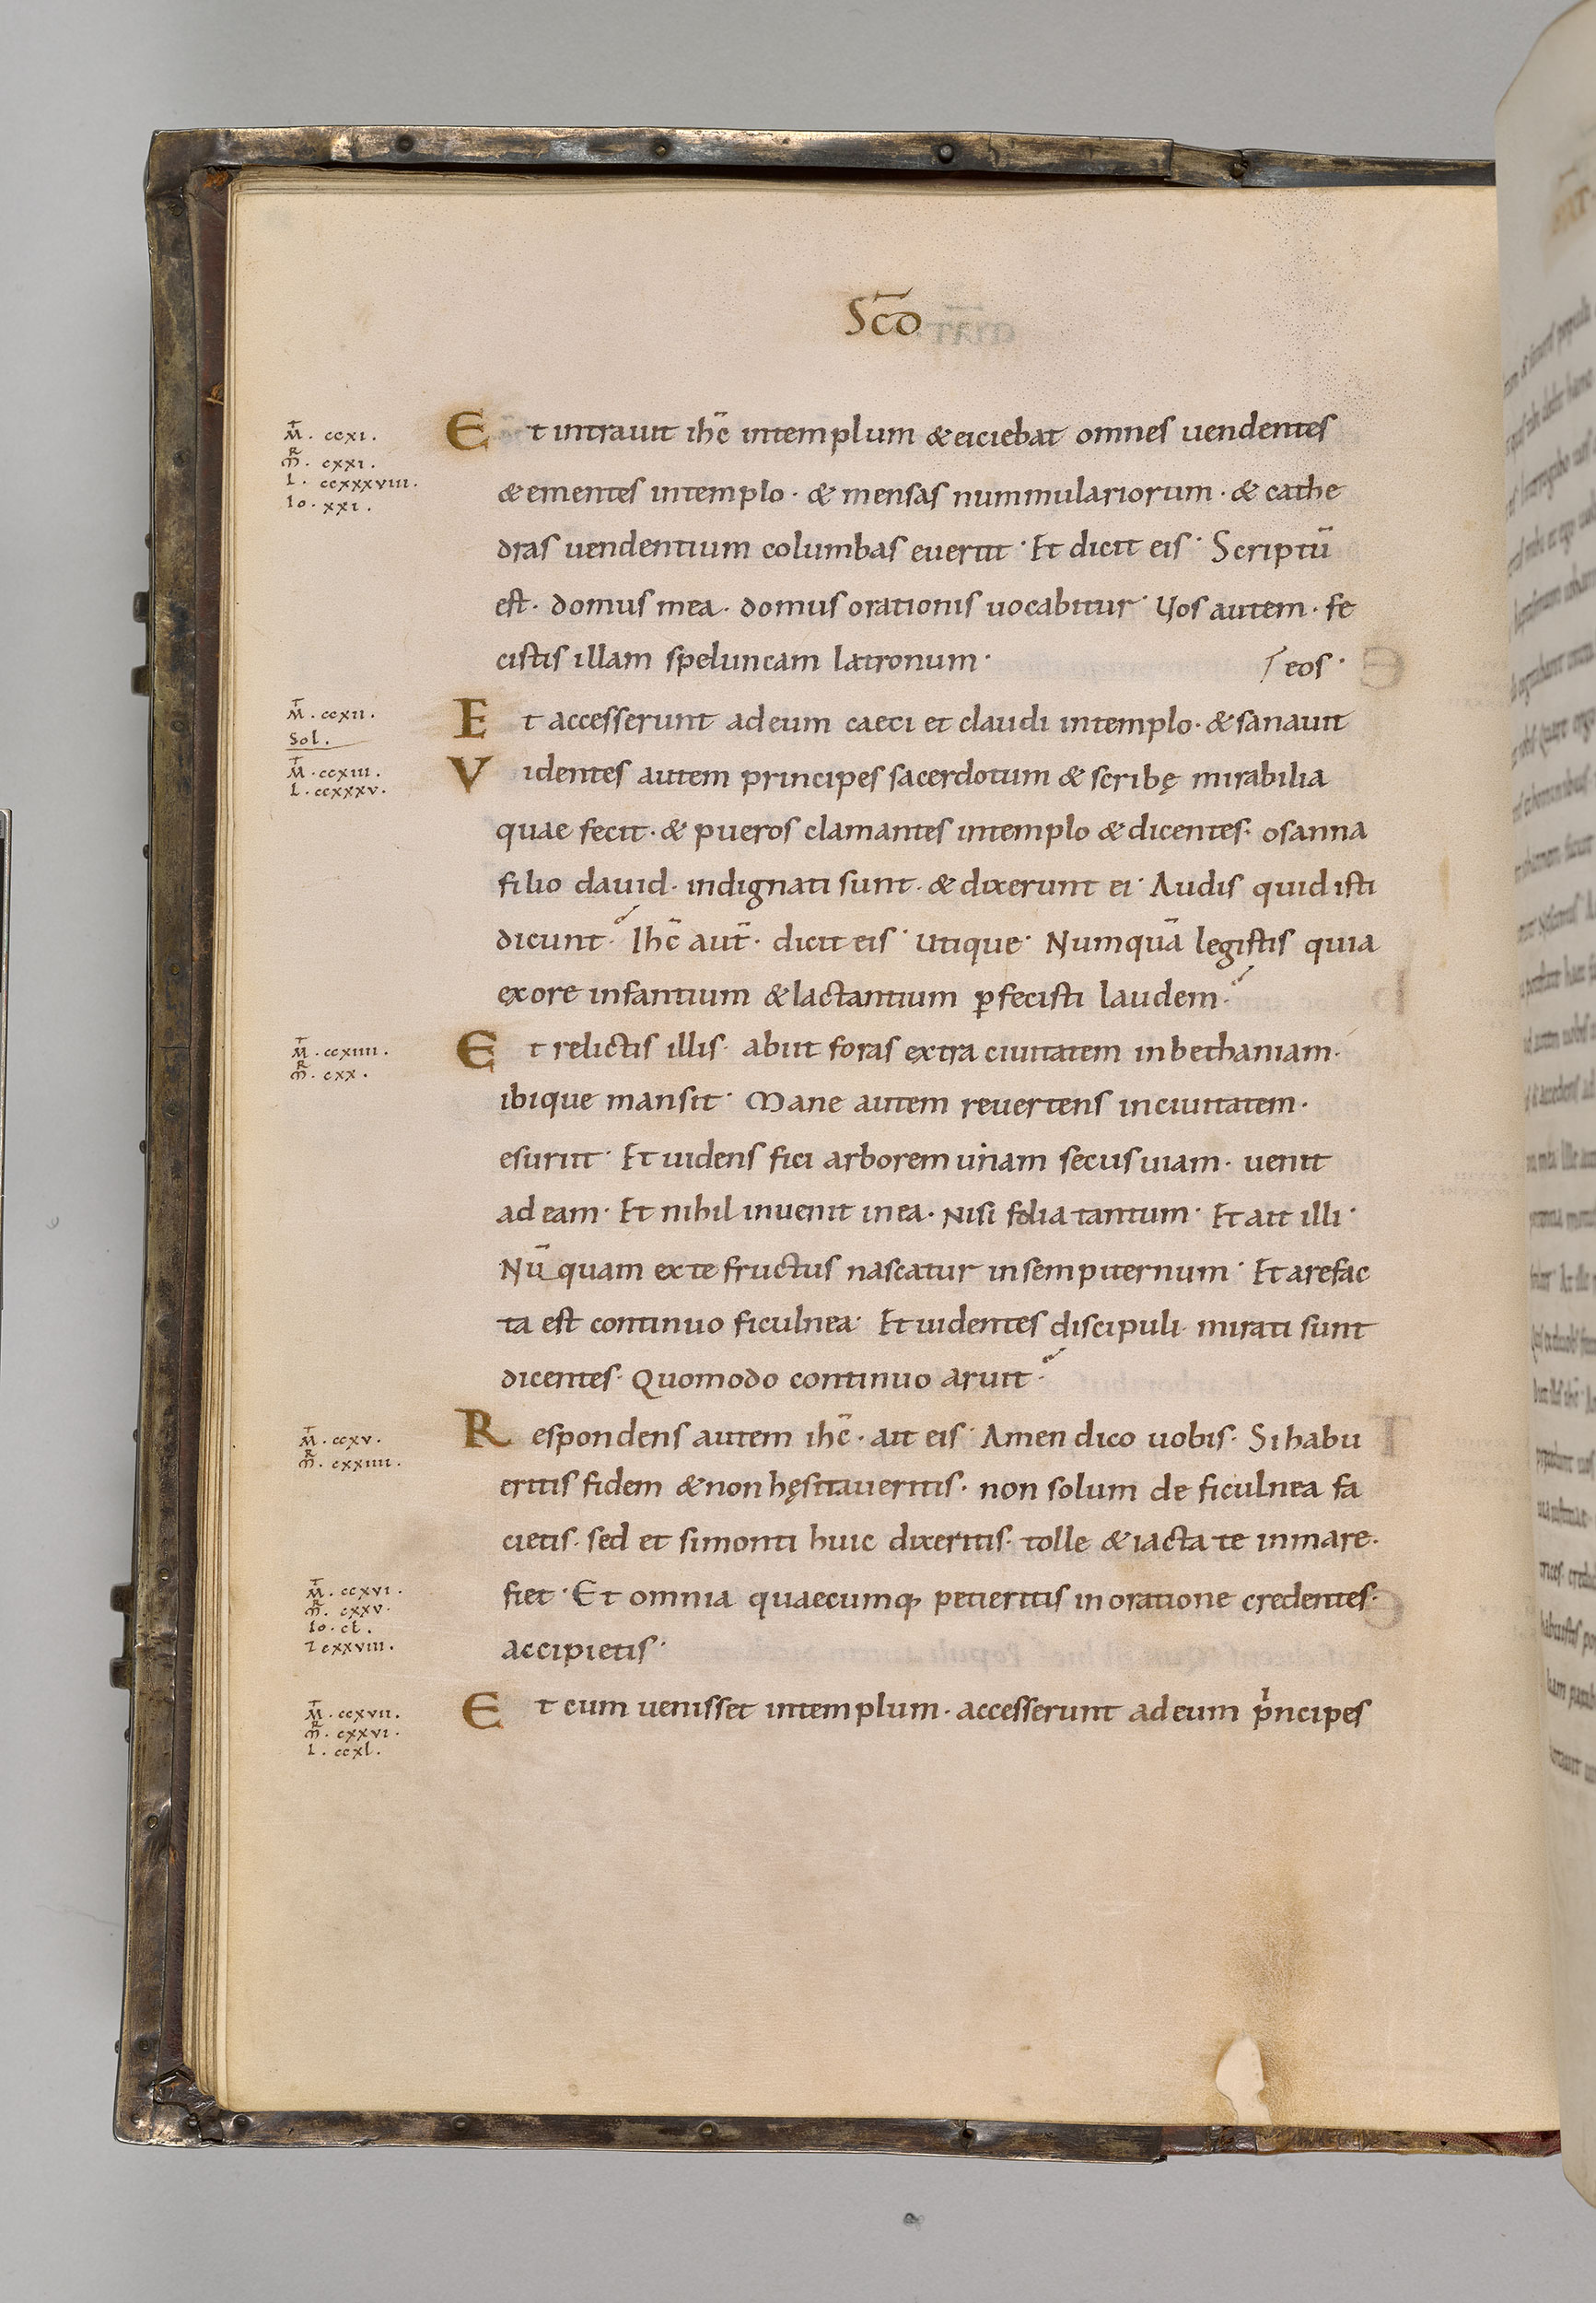 Scō
M̄. ccxi.
M̄R. cxxi.
L. ccxxxviii.
Io. xxi.
Et intrauit ihc̄ intemplum & eiciebat omnes uendentes
& ementes intemplo· & mensas nummulariorum· & cathe
dras uendentium columbas euertit· Et dicit eis· Scriptū
est· domus mea· domus orationis uocabitur· Vos autem· fe
cistis illam speluncam latronum·
eos·
M̄. ccxii.
Sol.
Et accesserunt adeum caeci et claudi intemplo· & sanauit
M̄. ccxiii.
L. ccxxxv.
Videntes autem principes sacerdotum & scribę mirabilia
quae fecit· & pueros clamantes intemplo & dicentes· osanna
filio dauid· indignati sunt· & dixerunt ei· Audis quid isti
dicunt· Ihc̄ aut̄· dicit eis· utique· Numquā legistis quia
exore infantium & lactantium ꝑfecisti laudem·
M̄. ccxiiii.
M̄R. cxx.
Et relictis illis· abiit foras extra ciuitatem inbethaniam·
ibique mansit· Mane autem reuertens inciuitatem·
esuriit· Et uidens fici arborem unam secus uiam· uenit
ad eam· Et nihil inuenit inea· Nisi folia tantum· Et ait illi·
Nū quam exte fructus nascatur insempiternum· Et arefac
ta est continuo ficulnea· Et uidentes discipuli mirati sunt
dicentes· Quomodo continuo aruit·
M̄. ccxv.
M̄R. cxxiiii.
Respondens autem ihc̄· ait eis· Amen dico uobis· Si habu
eritis fidem & non hęsitaueritis· non solum de ficulnea fa
cietis· sed et simonti huic dixeritis· tolle & iacta te inmare·
M̄. ccxvi.
M̄R. cxxv.
Io. ct.
cxxviii.
fiet· Et omnia quaecumq; petieritis in oratione credentes·
accipietis·
M̄. ccxvii.
M̄R. cxxvi.
L. ccxl.
Et cum uenisset intemplum· accesserunt adeum pⁱncipes